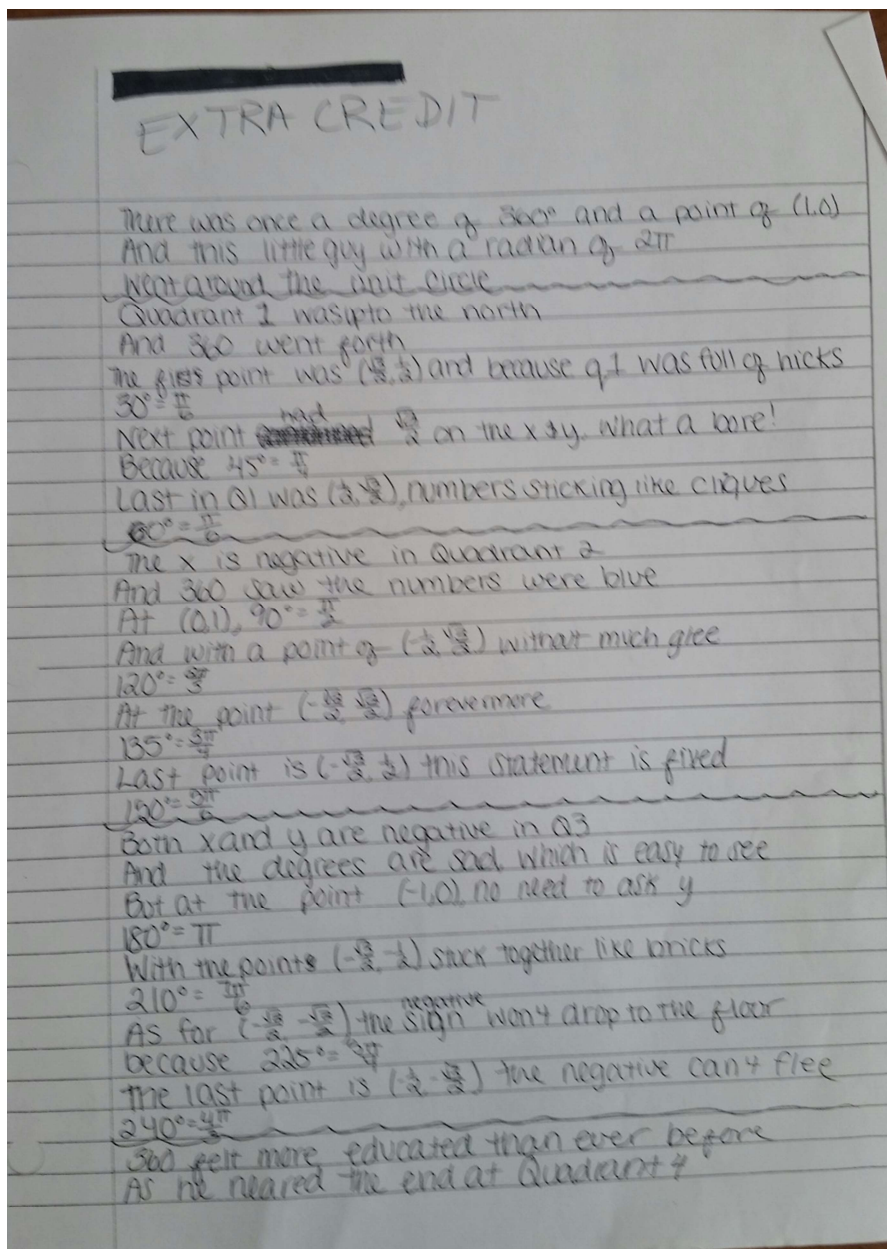 EXTRA CREDIT
There was once a degree of 360° and a point of (1,0)
And this little guy with a radian of 2π
Went around the unit circle
Quadrant 1 was up to the north
And 360 went forth
The first point was (√3/2, 1/2) and because q1 was full of hicks
30°=π/6
Next point had √2/2 on the x & y. What a bore!
Because 45°=π/4
Last in Q1 was (1/2, √3/2), numbers sticking like cliques
60°=π/6
The x is negative in Quadrant 2
And 360 saw the numbers were blue
At (0,1), 90°=π/2
And with a point of (-1/2, √3/2) without much glee
120°=2π/3
At the point (-√2/2, √2/2) forevermore
135°=3π/4
Last point is (-√3/2, 1/2) this statement is fixed
150°=5π/6
Both x and y are negative in Q3
And the degrees are sad, which is easy to see
But at the point (-1,0), no need to ask y
180°=π
With the points (-√3/2, -1/2) stuck together like bricks
210°=7π/6
As for (-√2/2, -√2/2) the negative sign won't drop to the floor
because 225°=
The last point is (-1/2, -√3/2) the negative can't flee
240°=4π/3
360 felt more educated than ever before
As he neared the end at Quadrant 4